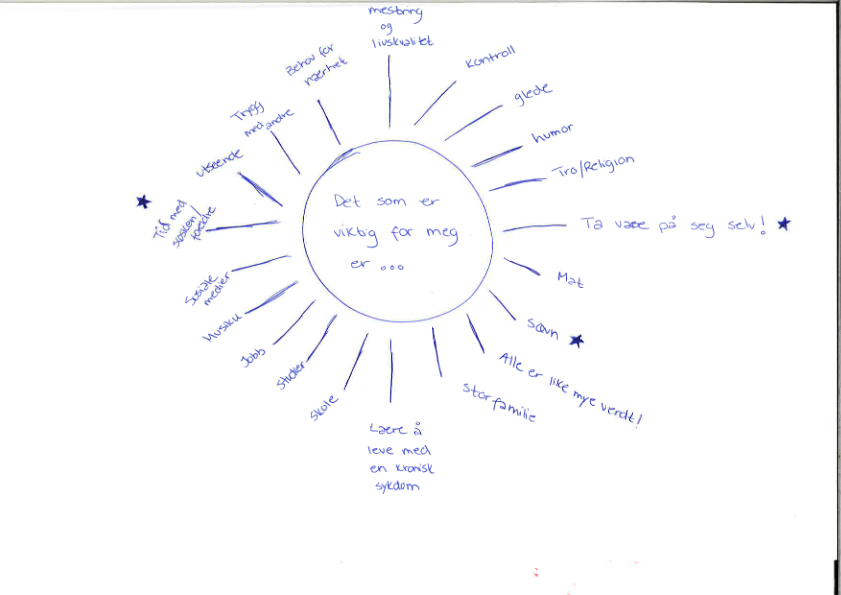 Det som er
viktig for meg
er ...
mestring
og
livskvalitet
Kontroll
glede
humor
Tro/Religion
Ta vare på seg selv!
Mat
søvn
Alle er like mye verdt!
storfamilie
Lære å
leve med
en kronisk
sykdom
skole
Jobb
Musikk
Sosiale
medier
Tid med
søsken/
foreldre
utseende
Trygg
med andre
Behov for
nærhet